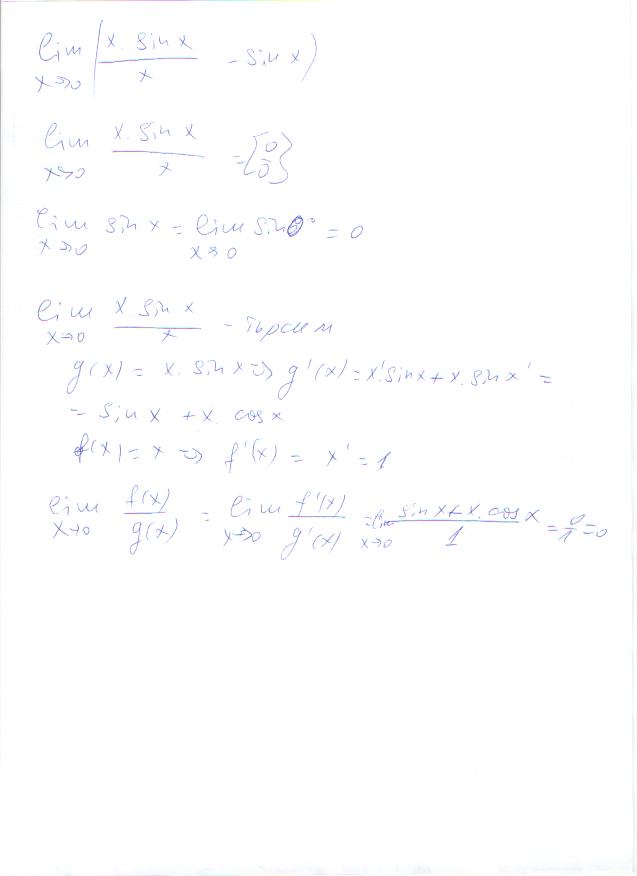 lim x→0 (x. sin x / x - sin x)
lim x→0 x. sin x / x = [0/0]
lim x→0 sin x = lim x→0 sin 0° = 0
lim x→0 x. sin x / x - търсим
g(x) = x. sin x => g'(x) = x' sin x + x. sin x' =
= sin x + x. cos x
f(x) = x => f'(x) = x' = 1
lim x→0 f(x)/g(x) = lim x→0 f'(x)/g'(x) = lim x→0 sin x + x. cos x / 1 = 0/1 = 0